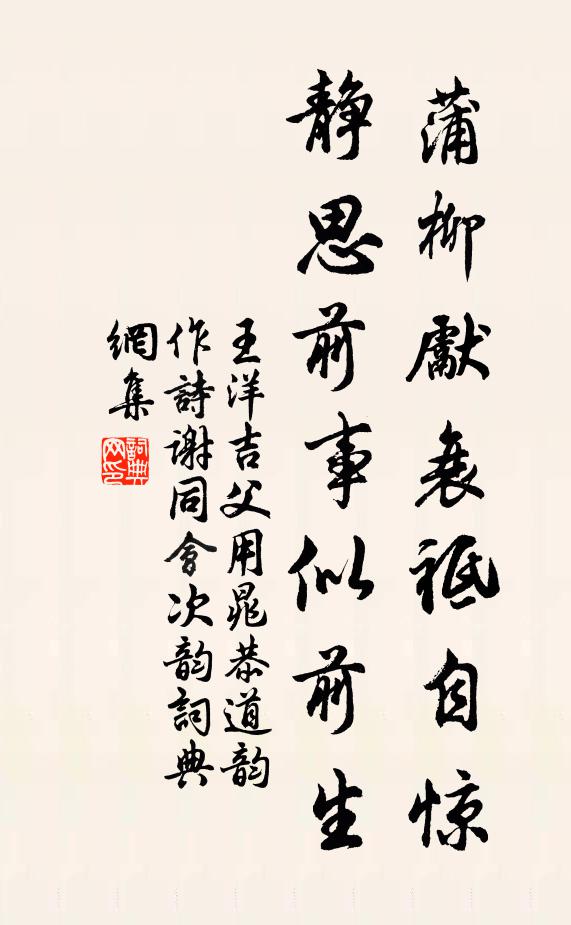 蒲柳獻衰祗自惊
静思前事似前生
王洋吉父用晁恭道韵
作詩谢同會次韵詞典
網集
詞典
网印